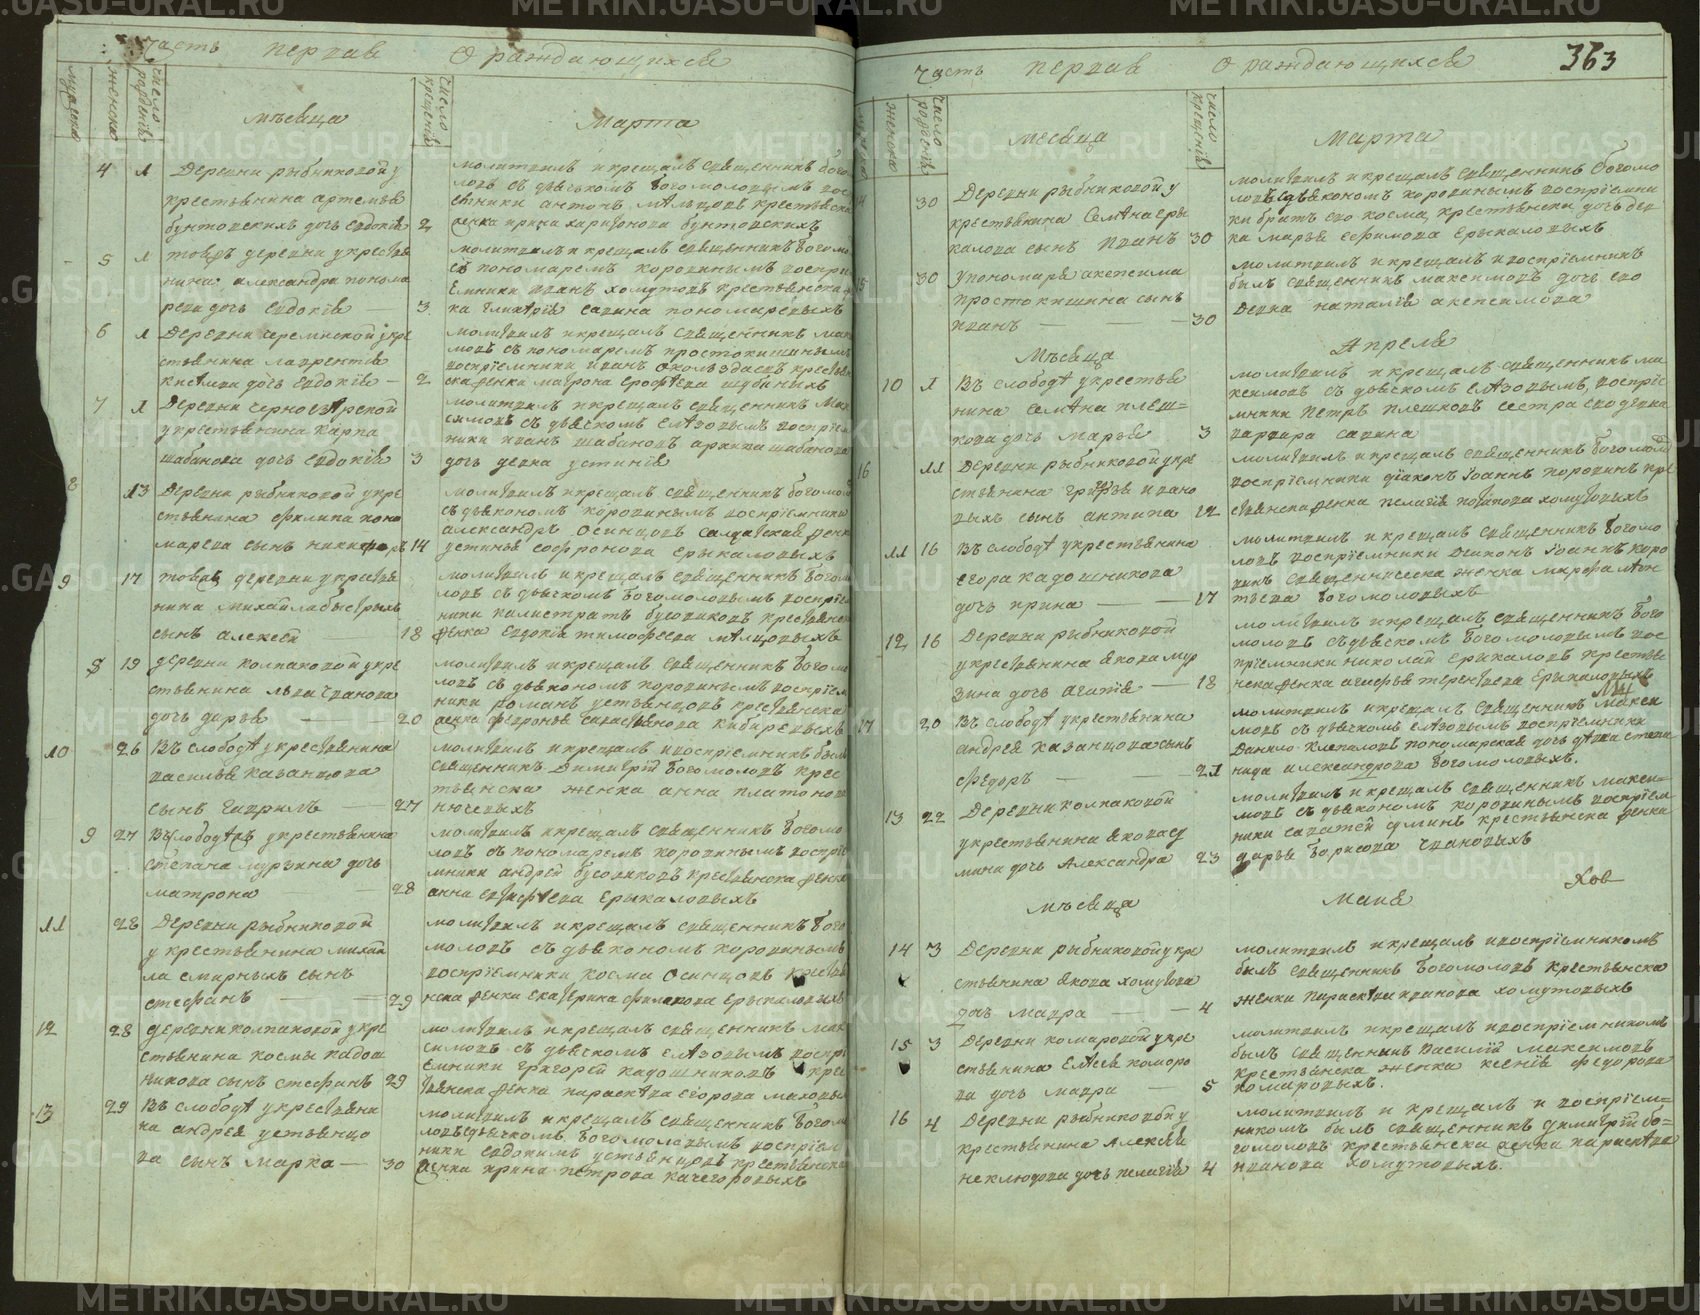 Часть первая О раждающихся
мужеска
женска
число рождения
мѣсяца
число крещения
Марта
4 1 Деревни рыбниковой у
крестьянина артемья
бунторскихъ дочь евдокія 2
молитвилъ и крещалъ священникъ бого
ловъ съ дьячькомъ богомоловымъ вос
девка ирина харитонова бунторскихъ
5 1 товжъ деревни у крестья
нина александра понома
рева дочь евдокія 3
молитвилъ и крещалъ священникъ богомо
съ пономаремъ коровинымъ воспри
емники иванъ хомутовъ крестьянска
ка гликерія савина пономаревыхъ
6 1 Деревни черемиской у кре
стьянина лаврентія
дочь евдокія 2
молитвилъ и крещалъ священникъ мак
мовъ съ пономаремъ простокишинымъ
воспріемники иванъ
ска женка матрона ерофеева шубиныхъ
7 1 Деревни черноозерской
у крестьянина карпа
шабанова дочь евдокія 3
молитвилъ и крещалъ священникъ мак
симовъ съ дьячкомъ елѣзовымъ воспріем
ники иванъ шабановъ архипа шабанова
дочь девка устинія
8 13 Деревни рыбниковой у кре
стьянина филипа поно
марева сынъ никифоръ 14
молитвилъ и крещалъ священникъ богомол
съ дьякономъ коровинымъ воспріемники
александръ осинцовъ салдатская женка
устинья софронова ерыкаловыхъ
9 17 товжъ деревни у крестья
нина михайла быстрыхъ
сынъ алексей 18
молитвилъ и крещалъ священникъ богом
ловъ съ дьячкомъ богомоловымъ воспріем
ники калистратъ бусовиковъ крестьянск
женка евдокія тимофеева мѣльцовыхъ
8 19 деревни колпаковой у кре
стьянина льва иванова
дочь дарья 20
молитвилъ и крещалъ священникъ богомо
ловъ съ дьякономъ коровинымъ воспріем
ники романъ устьянцовъ крестьянска
девка федронья савастьянова кибиревыхъ
10 26 Въ слободѣ у крестьянина
василья казанцова
сынъ гаврилъ 27
молитвилъ и крещалъ и воспріемникъ былъ
священникъ Димитрій богомоловъ крес
тьянска женка анна платонова
нючевыхъ
9 27 Въ слободѣ у крестьянина
степана мурзина дочь
матрона 28
молитвилъ и крещалъ священникъ богомо
ловъ съ пономаремъ коровинымъ воспріе
мники андрей бусовиковъ крестьянска женка
анна ерыкаловыхъ
11 28 Деревни рыбниковой
у крестьянина михай
ла смирныхъ сынъ
стефанъ 29
молитвилъ и крещалъ священникъ бого
моловъ съ дьякономъ коровинымъ
воспріемники косма осинцовъ крестья
нска женка екатерина филипова ерыкаловыхъ
12 28 деревни колпаковой у кре
стьянина космы кадош
никова сынъ стефанъ 29
молитвилъ и крещалъ священникъ мак
симовъ съ дьячкомъ елѣзовымъ воспрі
емники григорей кадошниковъ крес
тьянска женка параскева егорова
13 29 Въ слободѣ у крестьяни
на андрея устьянцо
ва сынъ марка 30
молитвилъ и крещалъ священникъ богом
ловъ съ дьячкомъ богомоловымъ воспріем
ники евдокимъ устьянцовъ крестьянска
девка ирина петрова качегоровыхъ
Часть первая О раждающихся 363
женска
число рождения
Мѣсяца
число крещения
Марта
14 30 Деревни рыбниковой у
крестьянина семена еры
калова сынъ иванъ 30
молитвилъ и крещалъ священникъ богомо
ловъ съ дьякономъ коровинымъ воспріемни
ки братъ его косма, крестьянска дочь дев
ка марья ефимова ерыкаловыхъ
15 30 у пономаря акепсима
простокишина сынъ
иванъ 30
молитвилъ и крещалъ и воспріемникъ
былъ священникъ максимовъ дочь его
девка наталія акепсимова
Мѣсяца Апреля
10 1 Въ слободѣ у крестья
нина семена плеш=
кова дочь марья 3
молитвилъ и крещалъ священникъ ма
ксимовъ съ дьячкомъ елѣзовымъ, воспріе
мники петръ плешковъ сестра его девка
варвара савина
16 11 Деревни рыбниковой у кре
стьянина ивано
выхъ сынъ антипа 12
молитвилъ и крещалъ священникъ богомоло
воспріемники діаконъ Іоаннъ коровинъ кре
стьянска женка пелагія хомутовыхъ
11 16 Въ слободѣ у крестьянина
егора кадошникова
дочь ирина 17
молитвилъ и крещалъ священникъ богомо
ловъ воспріемники діаконъ Іоаннъ коро
винъ священническа женка марфа
богомоловыхъ
12 16 Деревни рыбниковой
у крестьянина якова мур
зина дочь агафія 18
молитвилъ и крещалъ священникъ бого
моловъ съ дьячкомъ богомоловымъ вос
пріемники николай ерыкаловъ крестья
нска женка агафья терентьева ерыкаловыхъ
17 20 Въ слободѣ у крестьянина
андрея казанцова сынъ
федоръ 21
молитвилъ и крещалъ священникъ макси
мовъ съ дьячкомъ елѣзовымъ воспріемники
данило клепаловъ пономарская дочь девка степа
нида александрова богомоловыхъ.
13 22 Деревни колпаковой
у крестьянина якова су
мина дочь Александра 23
молитвилъ и крещалъ священникъ макси=
мовъ съ дьякономъ коровинымъ воспріем
ники савватей суминъ крестьянска женка
дарья борисова ивановыхъ
мѣсяца Маия
14 3 Деревни рыбниковой у кре
стьянина якова хомутова
дочь мавра 4
молитвилъ и крещалъ и воспріемникомъ
былъ священникъ богомоловъ крестьянска
женка параскева иванова хомутовыхъ
15 3 Деревни комаровой у кре
стьянина елисея комаро
ва дочь мавра 5
молитвилъ и крещалъ и воспріемникомъ
былъ священникъ василій максимовъ
крестьянска женка ксенія федорова
комаровыхъ.
16 4 Деревни рыбниковой у
крестьянина алексея
неклюдова дочь пелагія 4
молитвилъ и крещалъ и воспріем=
никомъ былъ священникъ димитрій бо=
гомоловъ крестьянска женка параскева
иванова хомутовыхъ.
METRIKI.GASO-URAL.RU